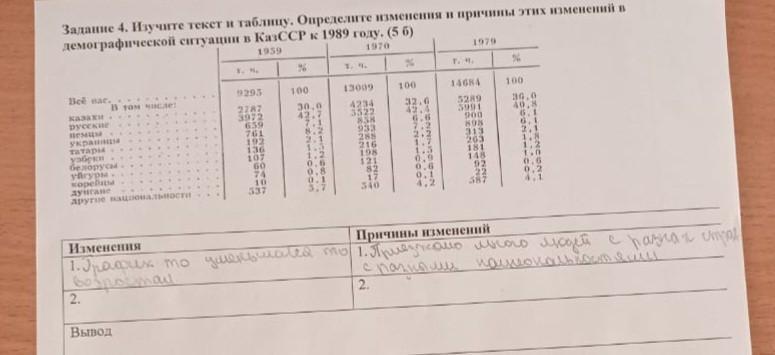 Задание 4. Изучите текст и таблицу. Определите изменения и причины этих изменений в
демографической ситуации в КазССР к 1989 году. (5 б)
1959 1970 1979
т. ч. % т. ч. % т. ч. %
Всё нас. 9295 100 13009 100 14684 100
В том числе:
казахи 2787 30,0 4234 32,6 5289 36,0
русские 3972 42,7 5522 42,4 5991 40,8
немцы 659 7,1 858 6,6 900 6,1
украинцы 761 8,2 933 7,2 898 6,1
татары 192 2,1 288 2,2 313 2,1
узбеки 136 1,5 216 1,7 263 1,8
белорусы 107 1,2 198 1,5 181 1,2
уйгуры 60 0,6 121 0,9 148 1,0
корейцы 74 0,8 82 0,6 92 0,6
дунгане 10 0,1 17 0,1 22 0,2
другие национальности 537 5,7 540 4,2 587 4,1
Изменения Причины изменений
1. График то уменьшался то
возростал
1. Приезжало много людей с разных стран
с разными национальностями
2. 2.
Вывод